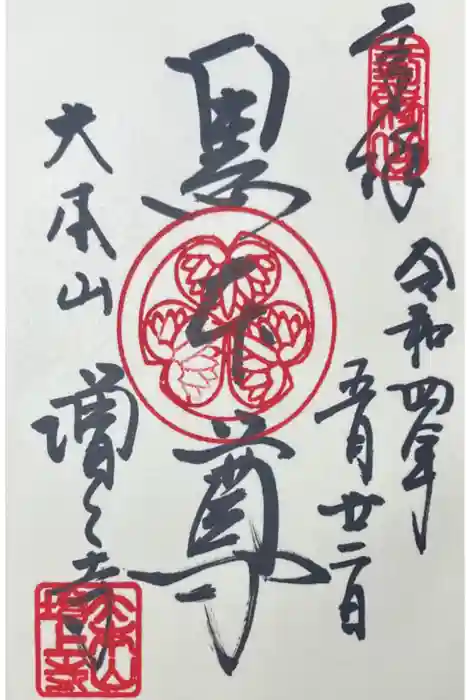 令和四年
五月廿二日
黒本尊
大本山 増上寺
大本山
増上寺